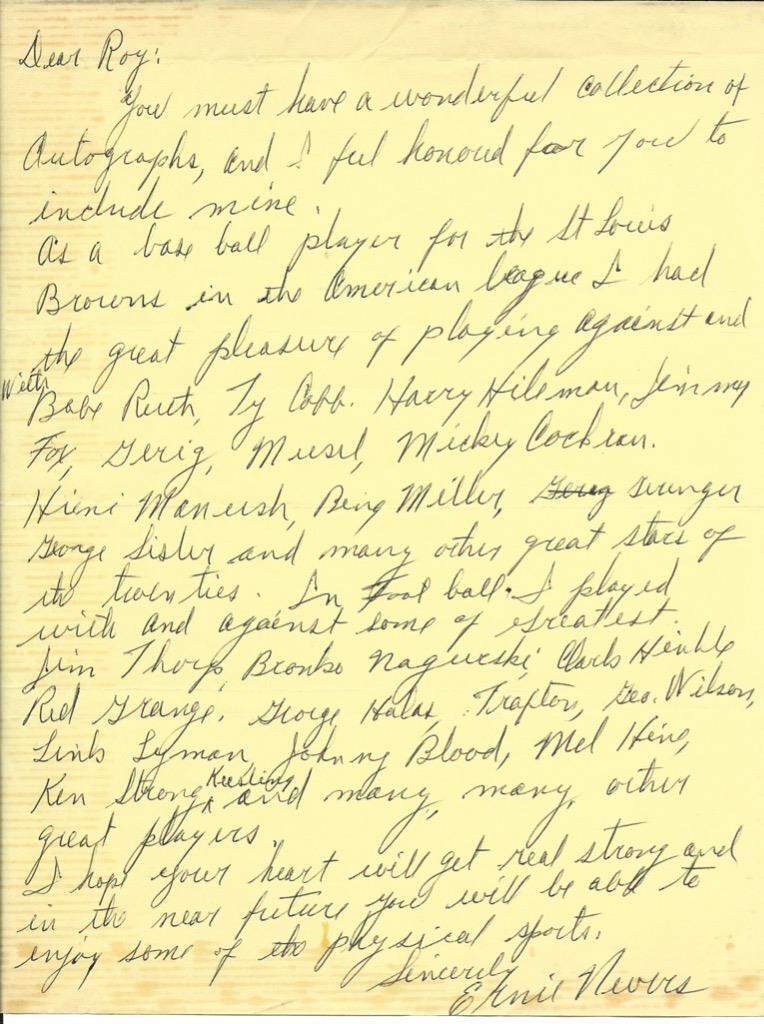 Dear Roy:
You must have a wonderful collection of
Autographs, and I feel honored for you to
include mine.
As a base ball player for the St Louis
Browns in the American league I had
the great pleasure of playing against and
With
Babe Ruth, Ty Cobb. Harry Hileman, Jimmy
Fox, Gerig, Musel, Mickey Cochran.
Hieni Manush, Bing Miller, Gerig
George Sisler and many other great stars of
the twenties. In Foot ball. I played
with and against some of greatest.
Jim Thorp, Bronko Nagurski, Clark Hinkle
Red Grange. George Halas, Trafton, Geo. Wilson,
Link Lyman, Johnny Blood, Mel Hine,
Ken Strong, Kiesling and many, many, other
great players.
I hope your heart will get real strong and
in the near future you will be able to
enjoy some of the physical sports.
Sincerely
Ernie Nevers